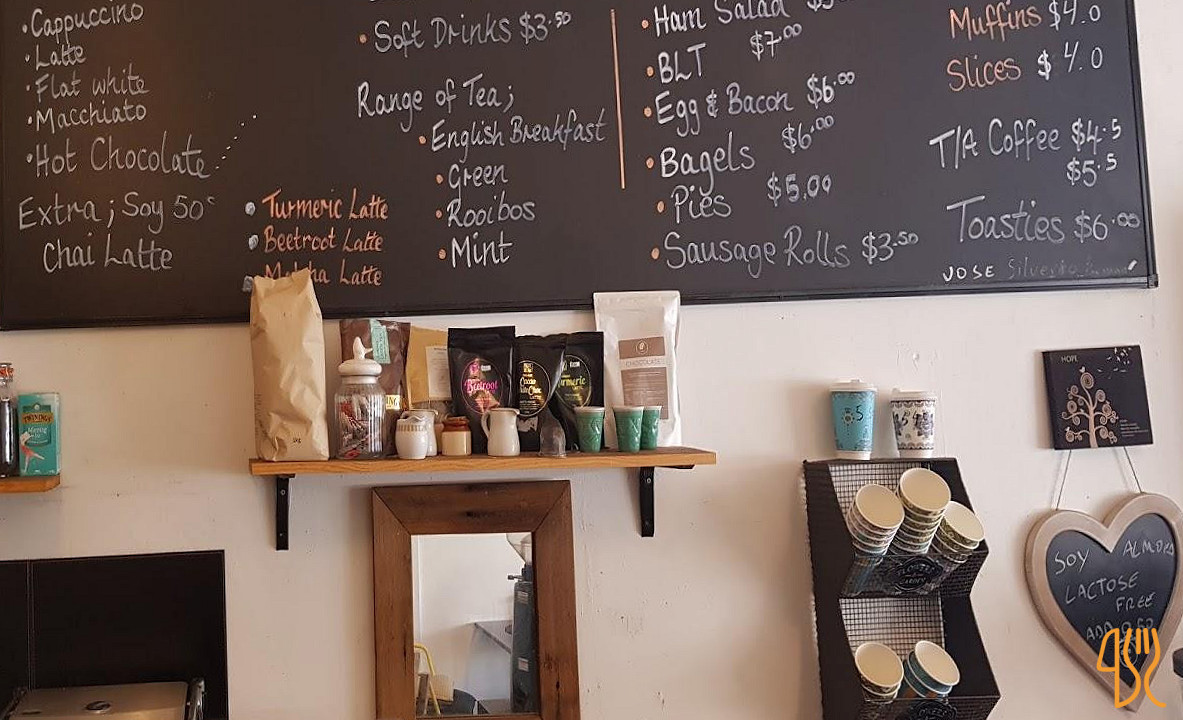 • Cappuccino
• Latte
• Flat white
• Macchiato
• Hot Chocolate
Extra ; Soy 50c
Chai Latte
• Turmeric Latte
• Beetroot Latte
Latte
• Soft Drinks $3.50
Range of Tea ;
• English Breakfast
• Green
• Rooibos
• Mint
• Ham Salad
• BLT $7.00
• Egg & Bacon $6.00
• Bagels $6.00
• Pies $5.00
• Sausage Rolls $3.50
Muffins $4.0
Slices $4.0
T/A Coffee $4.5
$5.5
Toasties $6.00
JOSE
TWININGS
Beetroot
Turmeric
CHOCOLATE
1kg
.5
5.5
HOPE
SOY ALMOND
LACTOSE
FREE